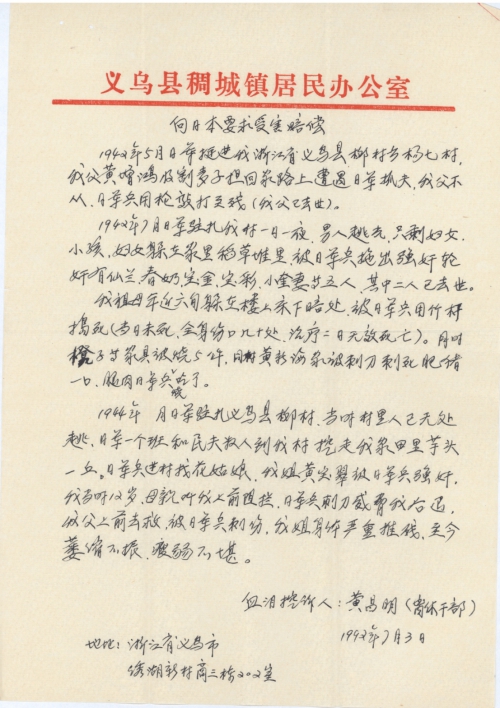 义乌县稠城镇居民办公室
向日本要求受害赔偿
1942年5月日军挺进我浙江省义乌县柳村乡杨七村,
我父黄嘴鸿收割麦子担回家路上遭遇日军抓夫,我父不
从,日军兵用枪敲打至残(我父已去世)。
1942年7月日军驻扎我村一日一夜,男人逃亡,只剩妇女、
小孩,妇女躲在家里稻草堆里,被日军兵拖出强奸轮
奸有仙兰、春奶、宝金、宝彩、小奎妻等五人,其中二人已去世。
我祖母年近六旬躲在楼上床下暗处,被日军兵用竹杆
捣死(当日未死,全身伤口九十处,治疗二日无效死亡)。同时
橙子等家具被烧5件,同村黄彩渝家被刺刀刺死肥猪
一口,腿肉日军兵吃了。
1944年 月日军驻扎义乌县柳村,当时村里人已无处
逃,日军一个班和民夫拟人到我村挖走我家田里芋头
一丘。日军兵进村找花姑娘,我姐黄宝翠被日军兵强奸,
我当时12岁,母亲叫我上前阻拦,日军兵刺刀威胁我后退,
我父上前去救,被日军兵刺伤,我姐身体严重摧残,至今
萎缩不振,瘦弱不堪。
血泪控诉人:黄昌明(离休干部)
1992年7月3日
地址:浙江省义乌市
绣湖新村商三栋202室